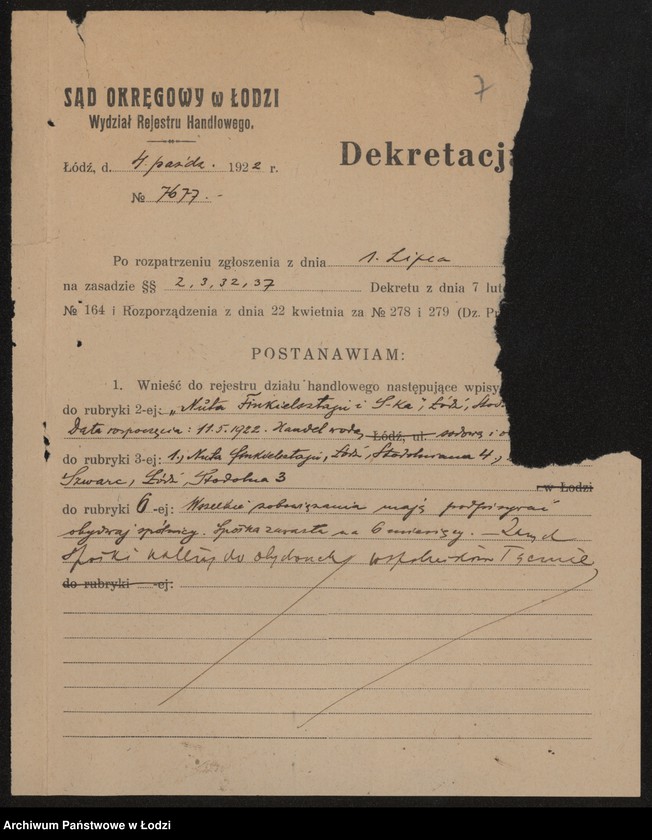 7
SĄD OKRĘGOWY w ŁODZI
Wydział Rejestru Handlowego.
Dekretacja
Łódź, d. 4 paźdz. 1922 r.
№ 7677.-
Po rozpatrzeniu zgłoszenia z dnia 1. Lipca
na zasadzie §§ 2, 3, 32, 37 Dekretu z dnia 7 lute
№ 164 i Rozporządzenia z dnia 22 kwietnia za № 278 i 279 (Dz. Pr
POSTANAWIAM:
1. Wnieść do rejestru działu handlowego następujące wpisy
do rubryki 2-ej: „Nuta Finkielsztajn i S-ka", Łódź,
Data rozpoczęcia: 11.5.1922. Handel wodą Łódź, ul. sodową i o
do rubryki 3-ej: 1., Nuta Finkielsztajn, Łódź, Stodolniana 4,
Szwarc, Łódź, Stodolna 3 w Łodzi
do rubryki 6-ej: Wszelkie zobowiązania mają podpisywać
obydwaj spólnicy. Spółka zawarta na 6 miesięcy. – Zarząd
spółki należy do obydwóch wspólników łącznie
do rubryki -ej:
Archiwum Państwowe w Łodzi